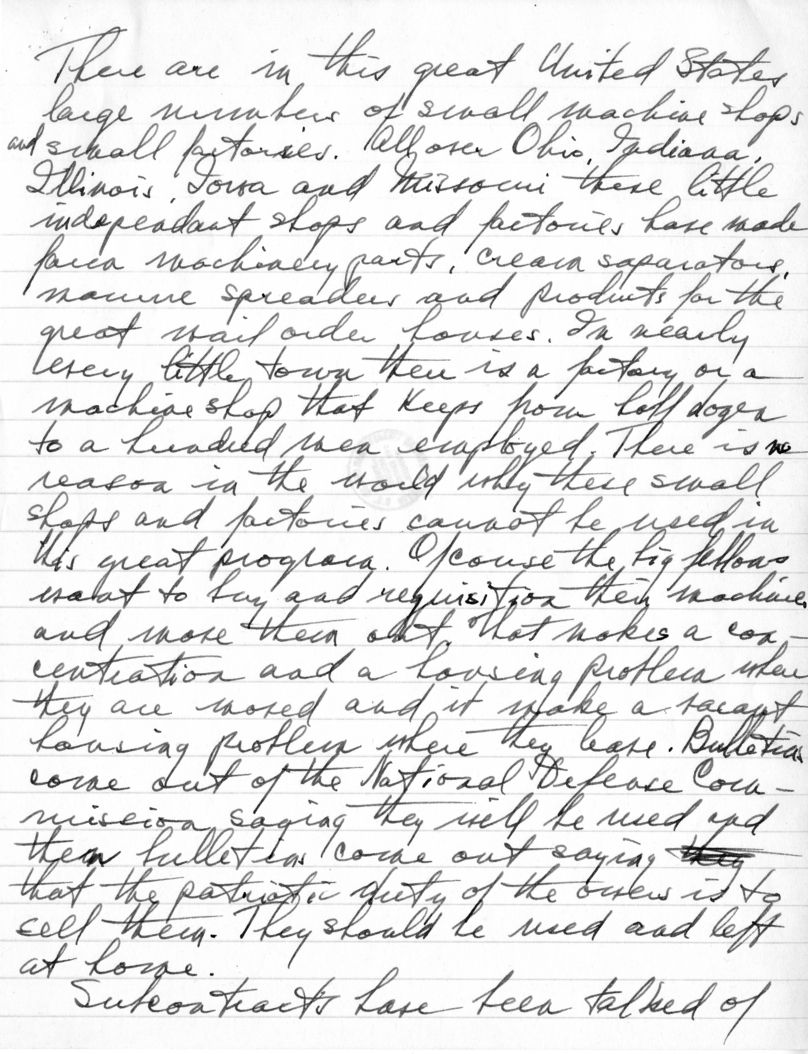 There are in this great United States
large numbers of small machine shops
and small factories. All over Ohio, Indiana,
Illinois, Iowa and Missouri these little
independant shops and factories have made
farm machinery parts, cream saparators,
manure spreaders and products for the
great mail order houses. In nearly
every little town there is a factory or a
machine shop that keeps from half dozen
to a hundred men employed. There is no
reason in the world why these small
shops and factories cannot be used in
this great program. Of couse the big fellows
want to buy and requisition their machines
and move them out. That makes a con-
centration and a housing problem where
they are moved and it make a vacant
housing problem where they leave. Bulletins
come out of the National Defense Com-
mission saying they will be used and
then bulletins come out saying they
that the patriotic duty of the owners is to
sell them. They should be used and left
at home.
Subcontracts have been talked of